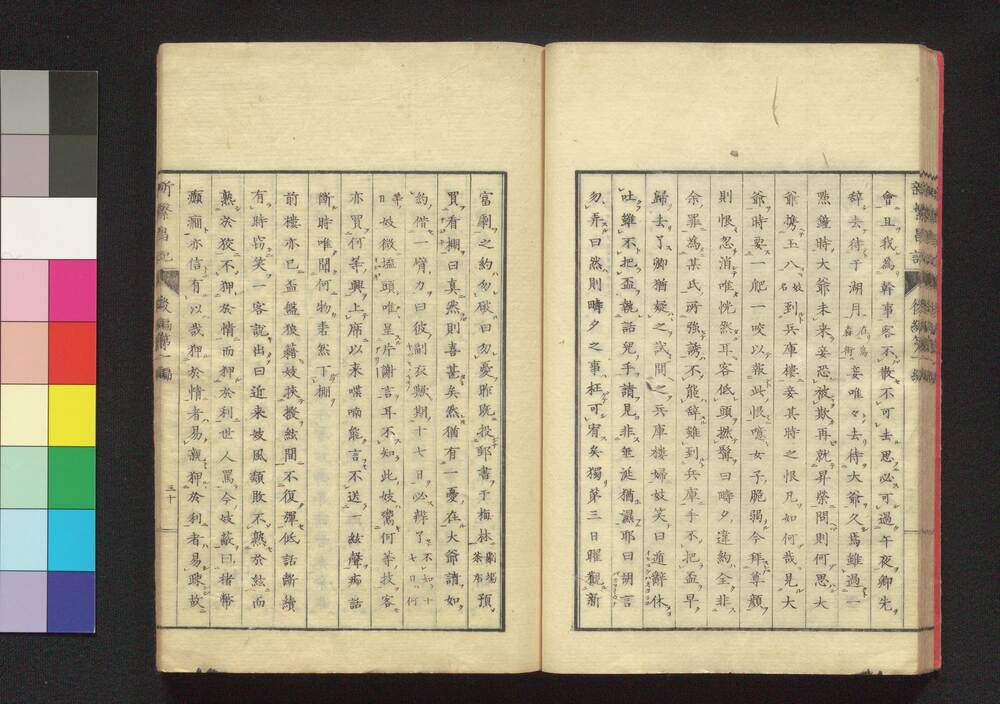 會且我爲幹事客不散不可去思必可過午夜卿先
辭去待于湖月在烏森街妾唯々去待大爺久焉雖過一
點鐘時大爺未來妾恐被欺再就昇榮問則何思大
爺携玉八妓名到兵庫樓妾其時之恨凡如何哉見大
爺時要一爬一咬以報此恨噫女子脆弱今拜尊顏
則恨忽消唯恍然耳客低頭撚鬢曰疇夕違約全非
余罪爲某氏所强誘不能辭雖到兵庫手不把盃早
歸去了卿猶疑之試問之兵庫樓婦妓笑曰遁辭休
吐雖不把盃執話兒手請見非無涎猶濕耶曰胡言
勿弄曰然則疇夕之事枉可宥矣獨第三日曜觀新
富劇之約勿破曰勿憂昨既投郵書于梅林劇場茶屋預
買看棚曰真然則喜甚矣然猶有一憂在大爺請如
約借一臂力曰彼副衣㷼期十七日必辨了不知十七日何等
日妓微搵頭唯呈片謝言耳不知此妓鬻何等技客
亦買何等興上席以來喋喃能言不送一絃聲痴話
斷時唯聞何物砉然下棚
前樓亦已盃盤狼藉妓挾撥絃間不復彈低話斷續
有時窃笑一客說出曰近來妓風頽敗不熟於絃而
熟於狡不狎於情而狎於利世人罵今妓蔽曰楮幣
癲癇亦信有以哉狎於情者易親狎於利者易疎故
三十